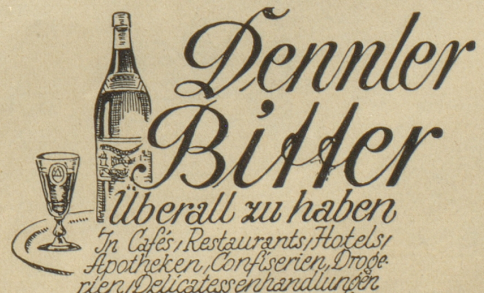 Dennler
Bitter
Überall zu haben
In Cafés, Restaurants, Hotels,
Apotheken, Confiserien, Droge-
rien, Delicatessenhandlungen